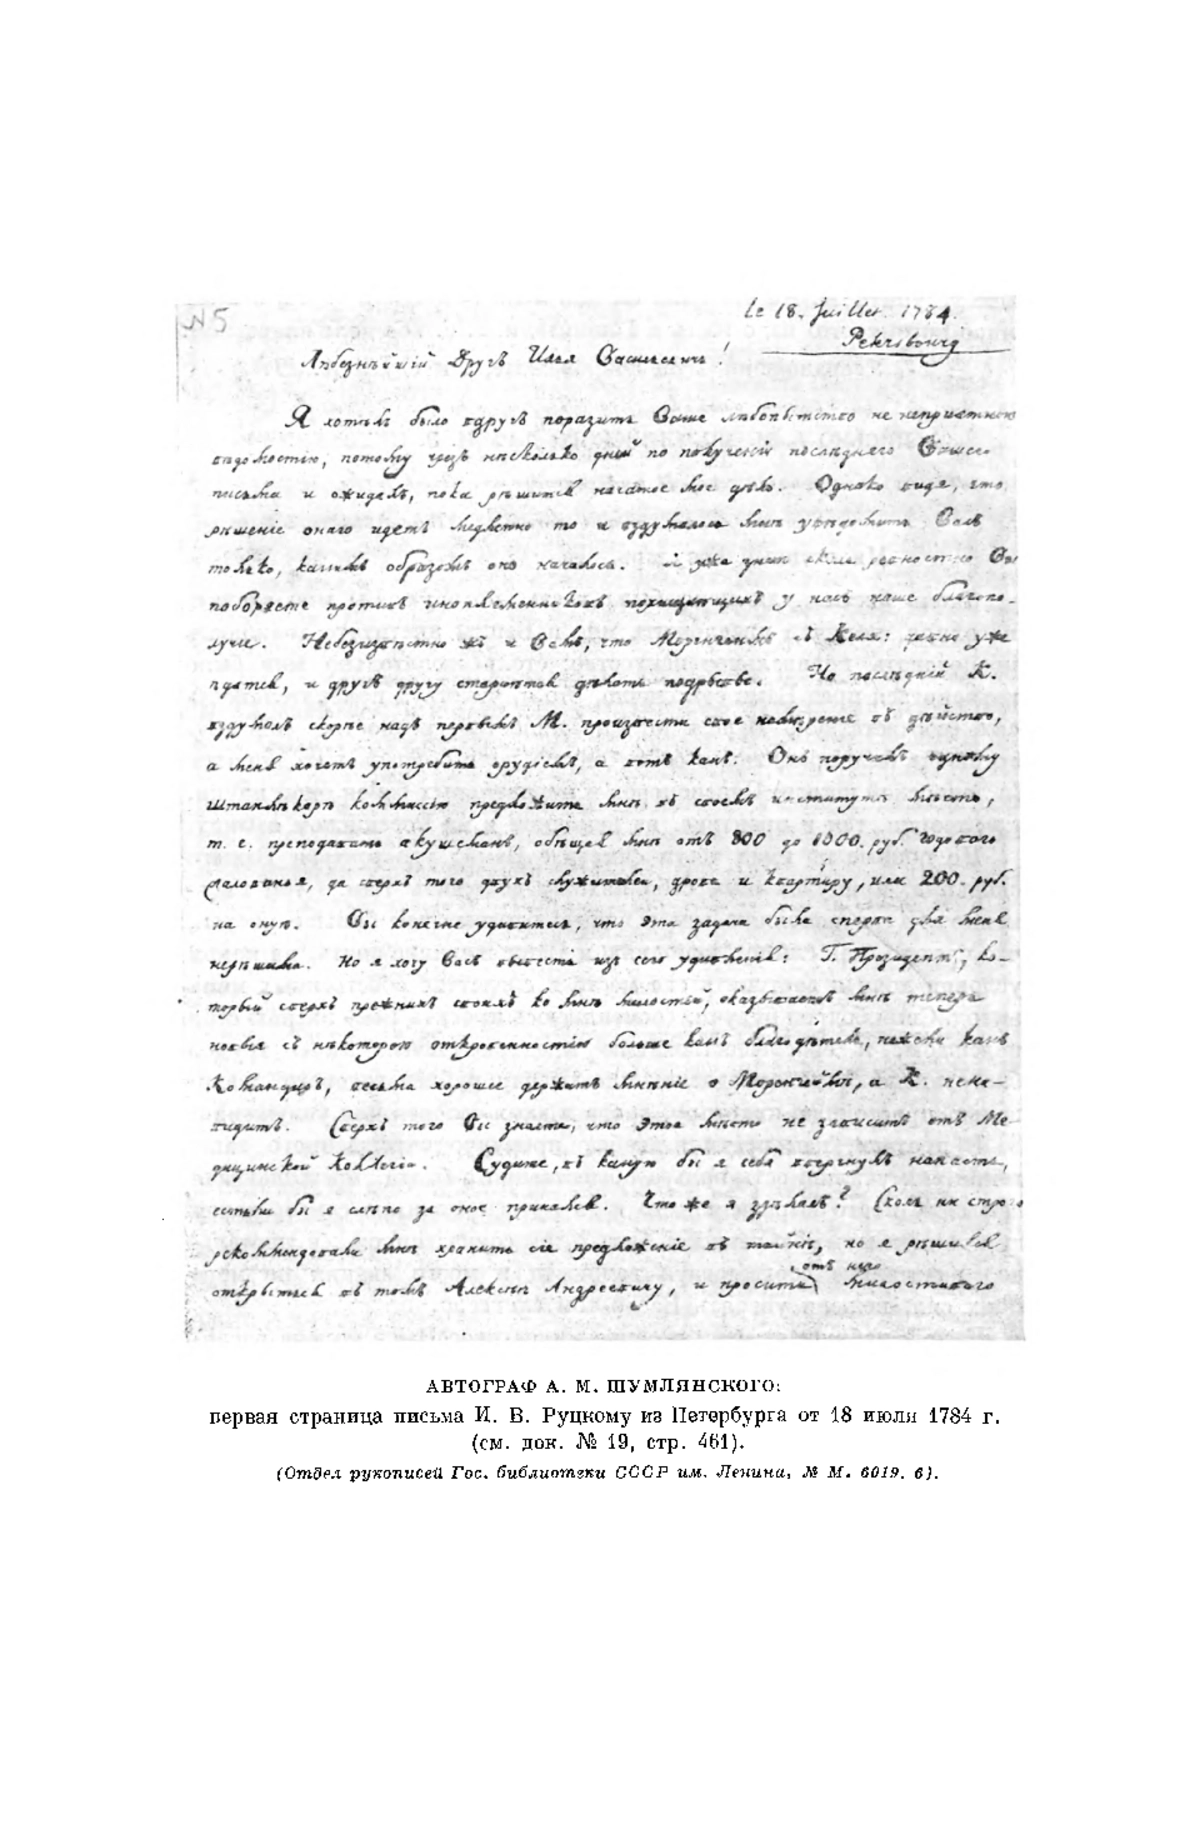 №5
Le 18. Juillet. 1784.
Petersbourg
Любезнѣйшій Другъ Илья Васильевичь!
Я хотѣлъ было вдругъ поразить Ваше любопытство не непріятною
вѣдомостію, потому чрезъ нѣсколько дней по полученіи послѣдняго Вашего
письма и ожидалъ, пока рѣшится начатое мое дѣло. Однако видя, что
рѣшеніе онаго идетъ медленно то и вздумалось мнѣ увѣдомить Васъ
только, какимъ образомъ оно началось. Я уже знаю ревностно Вы
поборяете противъ иноплеменниковъ похищающихъ у насъ наше благопо-
лучіе. Небезизвѣстно жъ и Вамъ, что съ Келх: давно уже
и другъ другу стараются дѣлать Но послѣдній К.
вздумалъ скорѣе надъ первымъ М. произвести свое въ дѣйство,
а меня хочетъ употребить орудіемъ, а вотъ какъ. Онъ поручилъ
коммиссію предложить мнѣ въ своемъ институтѣ мѣсто,
т. е. преподавать акушеманъ, обѣщая мнѣ отъ 800 до 1000. руб. годоваго
жалованья, да сверхъ того двухъ служителей, дрова и квартиру, или 200. руб.
на оную. Вы конечно удивитесь, что эта задача была сперва для меня
нерѣшима. Но я хочу Васъ вывести изъ сего удивленія: Г. Президентъ, ко-
торый сверхъ прежнихъ своихъ ко мнѣ милостей, оказываетъ мнѣ теперь
новыя съ нѣкоторою откровенностію больше какъ благодѣтель, нежели какъ
Командиръ, весьма хорошее держитъ мнѣніе о а К. нена-
видитъ. Сверхъ того Вы знаете, что этое мѣсто не зависитъ отъ Ме-
дицинской Коллегіи. Судите, въ какую бы я себя ввергнулъ напасть,
естьли бы я слѣпо за оное принялся. Что же я здѣлалъ? Сколь ни строго
рекоммендовали мнѣ хранить сіе предложеніе въ тайнѣ, но я рѣшился
отъ него
открыться въ томъ Алексѣю Андреевичу, и просить милостиваго
АВТОГРАФ А. М. ШУМЛЯНСКОГО:
первая страница письма И. В. Руцкому из Петербурга от 18 июля 1784 г.
(см. док. № 19, стр. 461).
(Отдел рукописей Гос. библиотеки СССР им. Ленина, № М. 6019. 6).